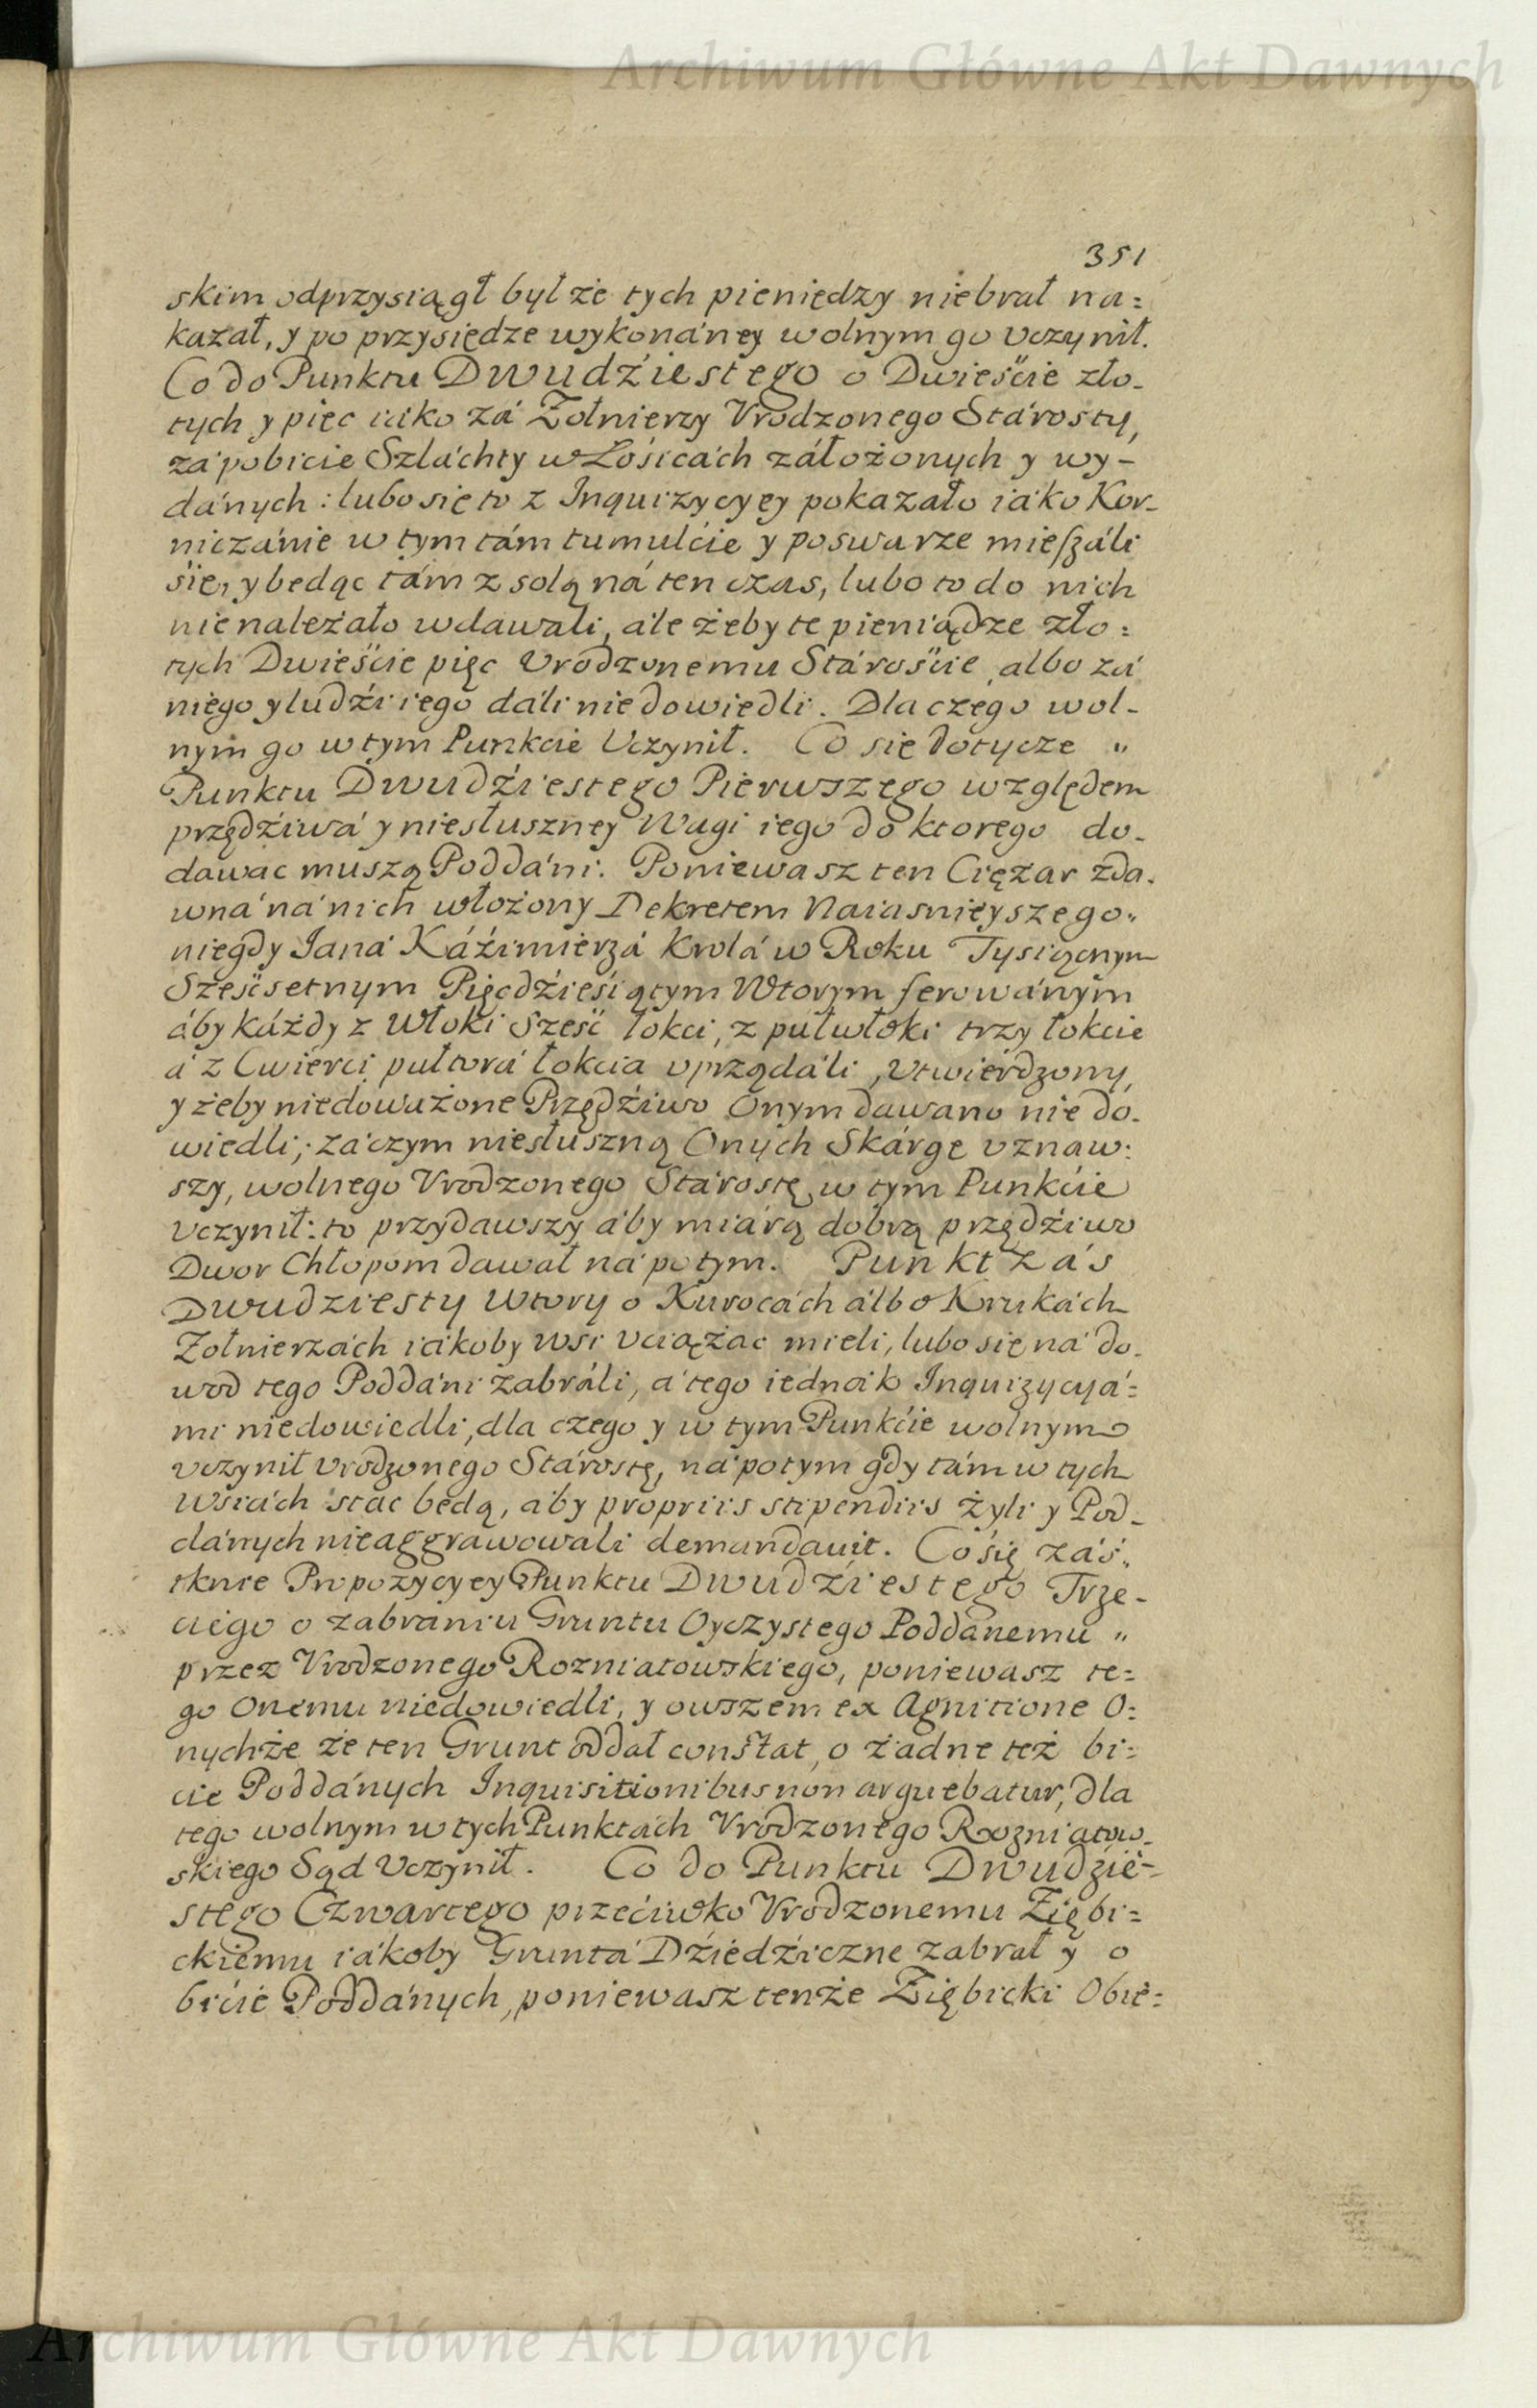 Archiwum Główne Akt Dawnych
351
skim odprzysiągł był że tych pieniędzy niebrał na=
kazał, y po przysiędze wykonáney wolnym go vczynił.
Co do Punktu Dwudźiestego o Dwieście zło-
tych y pięc iáko zá Żołnierzy Vrodzonego Stárosty,
zá pobicie Szláchty w Łosicách záłożonych y wy-
dánych: lubo się to z Inquizycyey pokazało iáko Kor-
niczánie w tym tám tumulcie y poswarze mieszáli
się, y będąc tám z solą ná ten czas, lubo to do nich
nienależało wdawali, ále żeby te pieniądze zło=
tych Dwieście pięc Vrodzonemu Stárośćie, albo zá
niego y ludźi iego dáli niedowiedli. Dla czego wol-
nym go w tym Punkcie Vczynił. Co się dotycze "
Punktu Dwudźiestego Pierwszego względem
przędźiwá y niesłuszney Wagi iego do ktorego do-
dawac muszą Poddáni. Poniewasz ten Ciężar zda-
wná ná nich włożony Dekretem Naiasnieyszego "
niegdy Janá Káźimierzá Krolá w Roku Tysiącnym
Sześcsetnym Pięcdźieśiątym Wtorym ferowánym
áby káżdy z Włoki Sześć łokci, z pułwłoki trzy łokcie
á z Cwierci pułtorá łokcia vprządáli, vtwierdzony,
y żeby niedoważone Przędźiwo Onym dawano nie do-
wiedli; záczym niesłuszną Onych Skárgę vznaw=
szy, wolnego Vrodzonego Stárostę w tym Punkćie
Vczynił: to przydawszy áby miárą dobrą przędźiwo
Dwor Chłopom dawał ná potym. Punkt zás
Dwudziesty Wtory o Kurocách álbo Krukách
Żołnierzách iákoby Wsi vciążac mieli, lubo się ná do-
wod tego Poddáni zabráli, á tego iednák Inquizycyá=
mi niedowiedli, dla czego y w tym Punkćie wolnym
vczynił Vrodzonego Stárostę, ná potym gdy tám w tych
Wsiách stac będą, áby propriis stipendiis żyli y Pod-
dánych nieaggrawowali demandauit. Co się záś "
tknie Propozycyey Punktu Dwudźiestego Trze-
ciego o zabraniu Gruntu Oyczystego Poddanemu "
przez Vrodzonego Rozniatowskiego, poniewasz te=
go Onemu niedowiedli, y owszem ex Agnitione O=
nychże że ten Grunt oddał constat, o żadne też bi=
cie Poddánych Inquisitionibus non arguebatur, dla
tego wolnym w tych Punktách Vrodzonego Rozniatow-
skiego Sąd Vczynił. Co do Punktu Dwudzie-
stego Czwartego przećiwko Vrodzonemu Ziębi=
ckiemu iákoby Gruntá Dźiedźiczne zabrał y o
bićie Poddánych, poniewasz tenże Ziębicki Obie=
Archiwum Główne Akt Dawnych